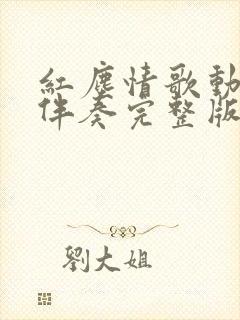 紅塵情歌動
伴奏完整版
劉大姐